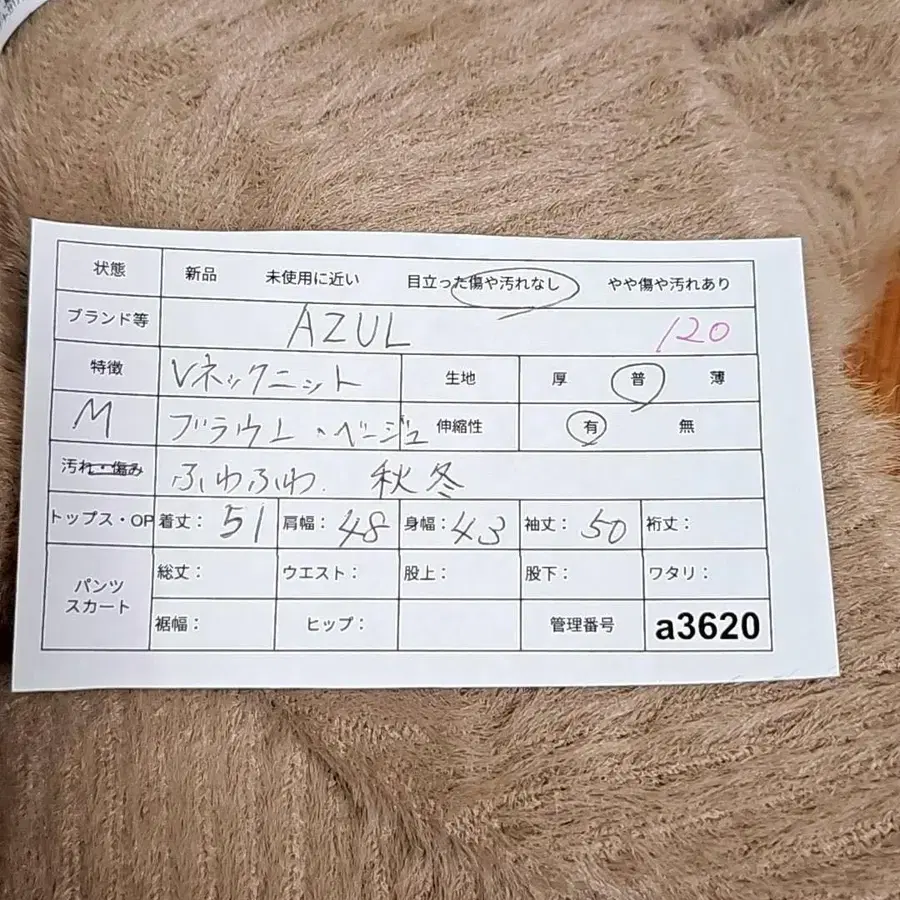 状態 新品 未使用に近い 目立った傷や汚れなし やや傷や汚れあり
ブランド等 AZUL 120
特徴 Vネックニット 生地 厚 普 薄
M ブラウン、ベージュ 伸縮性 有 無
汚れ・傷み ふわふわ. 秋冬
トップス・OP 着丈: 51 肩幅: 48 身幅: 43 袖丈: 50 裄丈:
パンツ 総丈: ウエスト: 股上: 股下: ワタリ:
スカート
裾幅: ヒップ: 管理番号 a3620